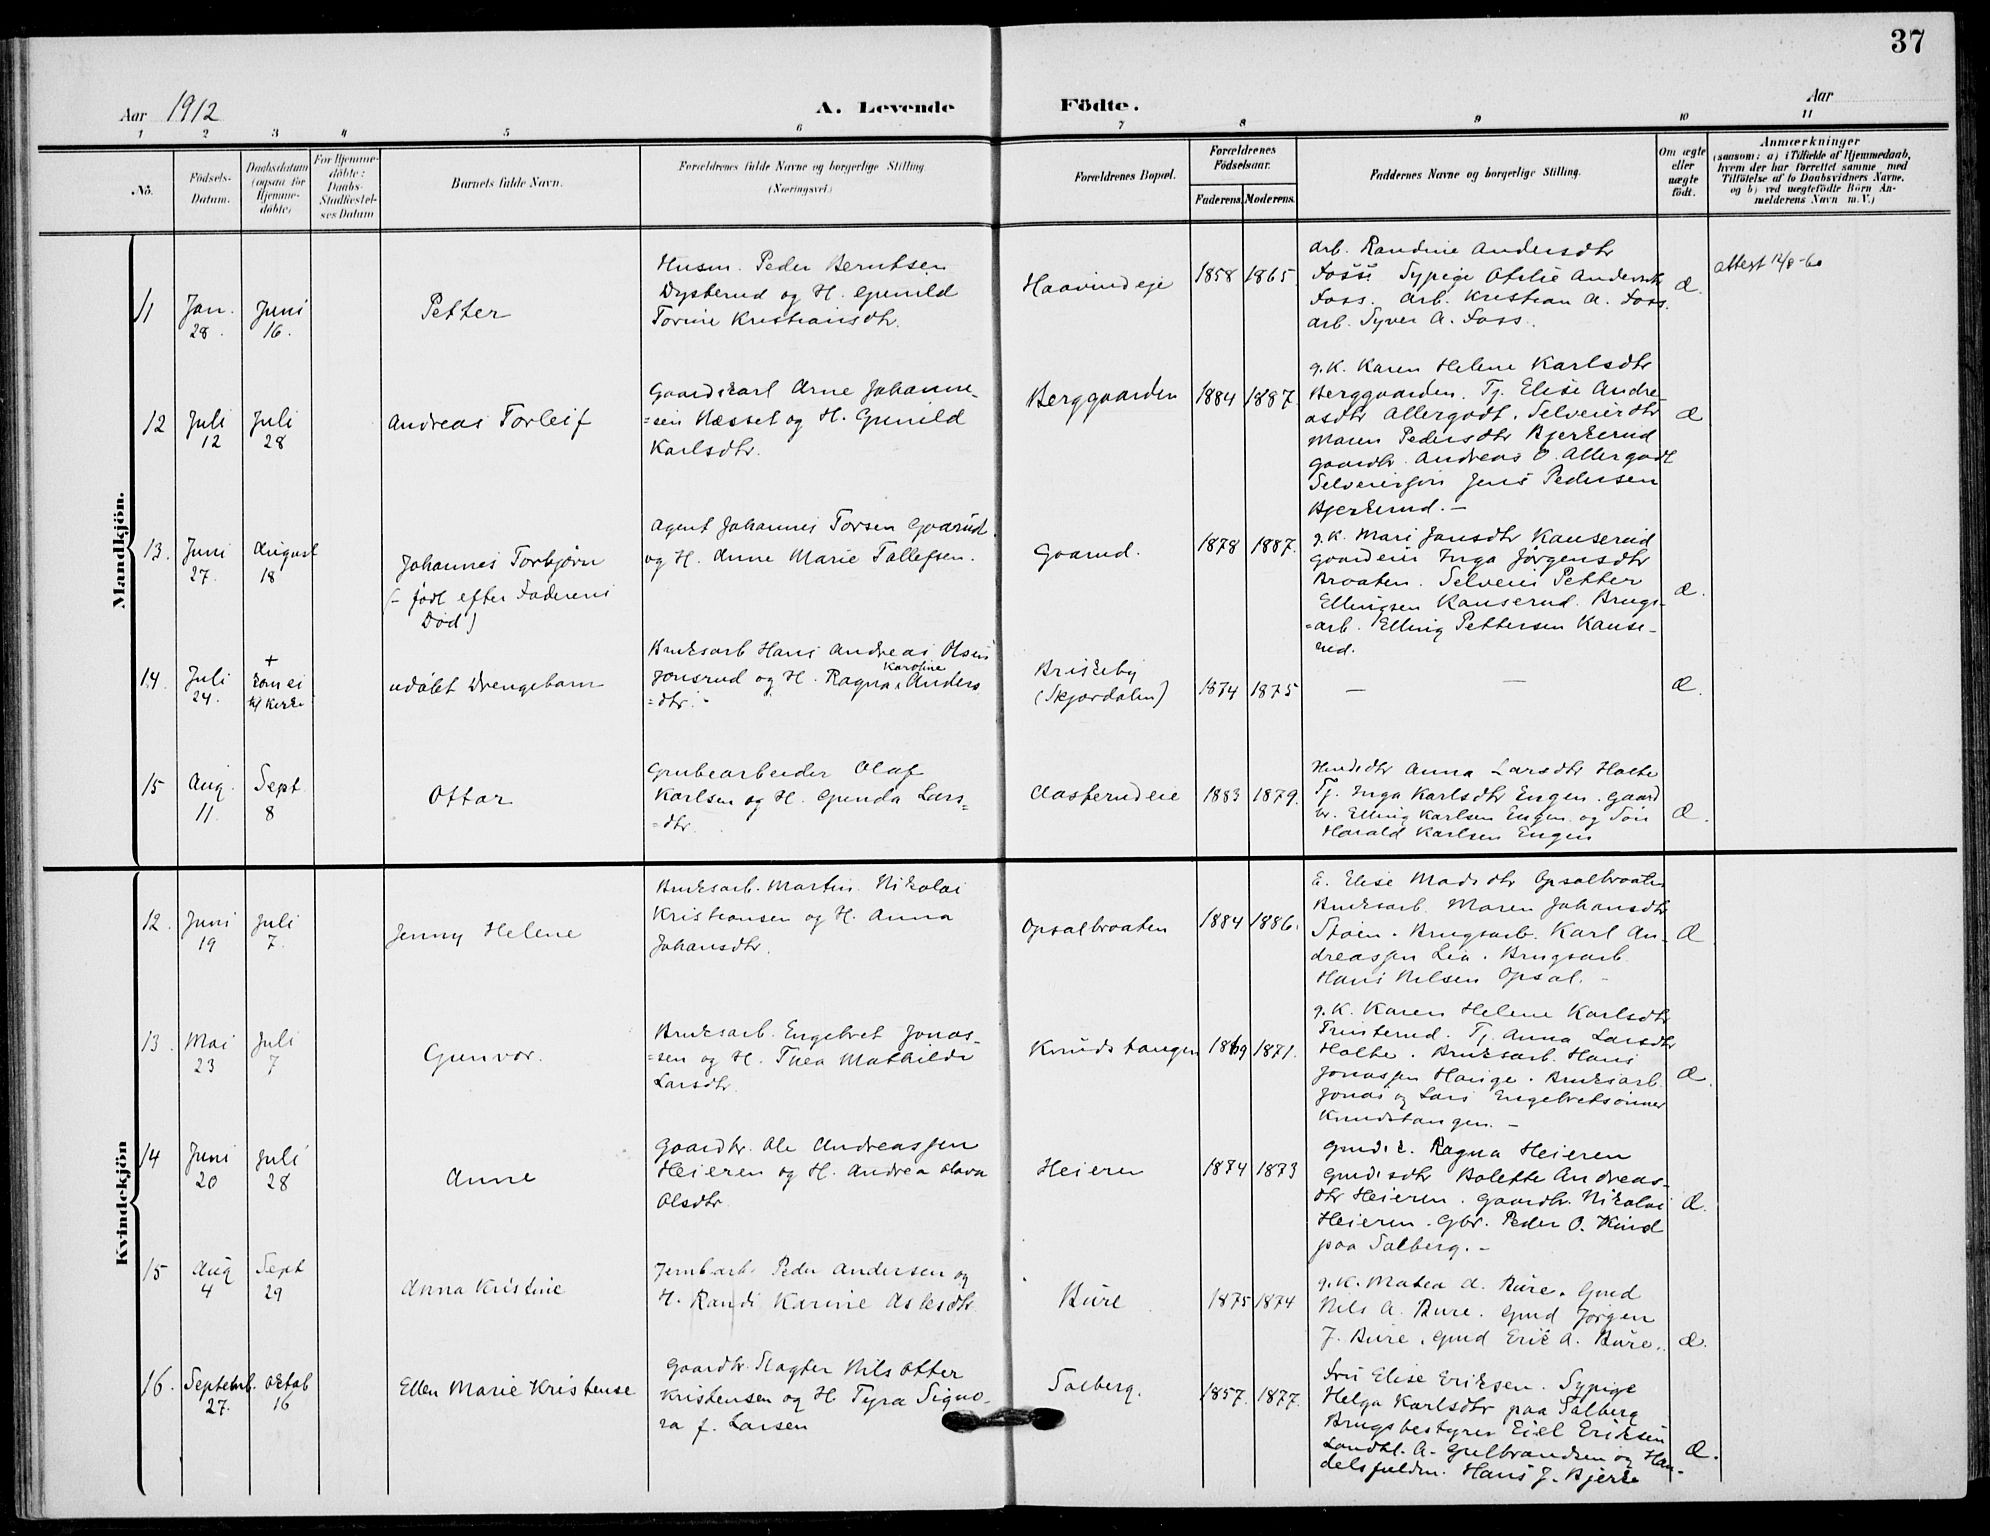 37
Aar 1912
A. Levende
Födte.
Aar
1 2 3 4 5 6 7 8 9 10 11
No.
Födsels-
Datum.
Daabsdatum
(ogsaa för
Hjemme-
döbte)
For Hjemme-
döbte:
Daabs-
Stadfæstel-
ses Datum
Barnets fulde Navn.
Forældrenes fulde Navne og borgerlige Stilling
(Næringsvei)
Forældrenes Bopæl.
Forældrenes
Födselsaar.
Faderens.
Moderens.
Faddernes Navne og borgerlige Stilling.
Om ægte
eller
uægte
født.
Anmærkninger
(saasom: a) i Tilfælde af Hjemmedaab,
hvem der har forrettet samme med
Tilföielse af to Daabsvidners Navne,
og b) ved uægtefödte Börn An-
melderens Navn m.V.)
Mandkjön.
11
Jan.
28.
Juni
16.
Petter
Husm. Peder Berntsen
Dysterud og H. Gunild
Torine Kristiansdtr.
Haavindeje
1858
1865.
arb. Randine Andersdtr
Foss. Sypige Otelie Andersdtr
Foss. arb. Kristian A. Foss.
arb. Syver A. Foss.
Æ.
attest 12/8-60
12
Juli
12
Juli
28
Andreas Torleif
Gaardskarl Arne Johanne-
=sen Næsset og H. Gunild
Karlsdtr.
Berggaarden
1884
1887.
g.K. Karen Helene Karlsdtr
Berggaarden. Tj. Elise Andre-
asdtr Allergodt. Selveierdtr
Maren Pedersdtr Bjerkerud
gaardbr. Andreas O. Allergodt
Selveiersøn Jens Pedersen
Bjerkerud. -
Æ
13.
Juni
27.
August
18
Johannes Torbjørn
(- født efter Faderens
Død)
Agent Johannes Torsen Gaarud.
og H. Anne Marie Tollefsen.
Gaarud.
1878
1887.
g.K. Mari Jansdtr Kanserud
gaardeier Inga Jørgensdtr
Braaten. Selveier Petter
Ellingsen Kanserud. Brugs-
=arb. Elling Pettersen Kanse-
rud.
Æ.
14.
Juli
24.
+
kom ei
til Kirke
udøbt Drengebarn
Bruksarb Hans Andreas Olsen
Jonsrud og H. Ragna Karoline Anders
=dtr. -
Briskeby
(Skjærdalen)
1874
1875
—
—
Æ.
15
Aug.
11.
Sept
8
Ottar
Grubearbeider Olaf
Karlsen og H. Gunda Lars=
=dtr.
Aasterudeie
1883
1879.
Husdtr Anna Larsdtr Holte
Tj. Inga Karlsdtr Engen. gaard
br. Elling Karlsen Engen og Søn
Harald Karlsen Engen
Æ.
Kvindekjön
12.
Juni
19
Juli
7.
Jenny Helene
Bruksarb. Martin Nikolai
Kristiansen og H. Anna
Johansdtr.
Opsalbraaten
1884
1886.
E. Elise Madsdtr Opsalbraaten
Bruksarb. Maren Johansdtr
Støen. Brugsarb. Karl An-
dreassen Lia. Brugsarb.
Hans Nilsen Opsal. -
Æ
13.
Mai
23
Juli
7
Gunvor.
Bruksarb. Engebret Jonas-
=sen og H. Thea Mathilde
Larsdtr.
Knudstangen
1869
1871.
g.K. Karen Helene Karlsdtr
Trusterud. Tj. Anna Larsdtr
Holte. Bruksarb. Hans
Jonassen Hauge. Bruksarb.
Jonas og Lars Engebretsønner
Knudstangen. -
Æ.
14
Juni
20
Juli
28
Anne
Gaardbr. Ole Andreassen
Heieren og H. Andrea Olava
Olsdtr.
Heieren
1874
1873
Gmdsk. Ragna Heieren
Gmdsdtr Bolette Andreas-
dtr Heieren. Gaardbr. Nikolai
Heieren. Gbr. Peder O. Hurd
paa Solberg. -
Æ.
15
Aug
4
Sept
29
Anna Kristine
Jernbarb. Peder Andersen og
H. Randi Karine Aslesdtr.
Bure
1875
1874
g.K. Matea A. Bure. Gmd
Nils A. Bure. Gmd Jørgen
J. Bure. Gmd Erik A. Bure.
Æ.
16.
Septemb.
27.
Oktob
16
Ellen Marie Kristense
Gaardbr. Slagter Nils Otter
Kristensen og H. Tyra Signo-
ra f. Larsen
Solberg.
1857.
1877.
Fru Elise Eriksen. Sypige
Helga Karlsdtr paa Solberg
Brugsbestyrer Eiel Eriksen
Landhl. A. Gulbrandsen og Han-
delsfuldm. Hans J. Bjerke
Æ.